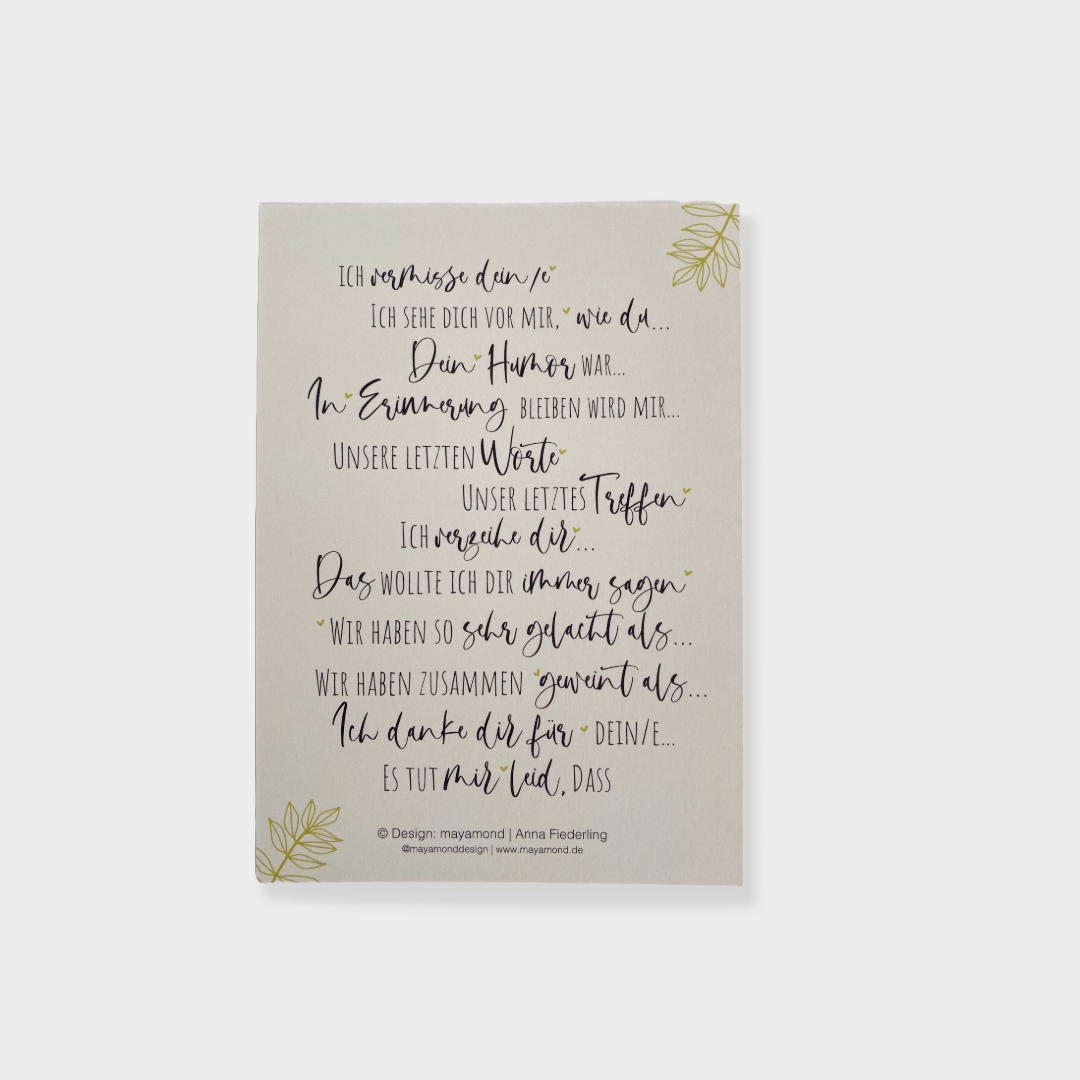 ICH vermisse dein/e
ICH SEHE DICH VOR MIR, wie du...
Dein Humor WAR...
In Erinnerung BLEIBEN WIRD MIR...
UNSERE LETZTEN Worte
UNSER LETZTES Treffen
ICH verzeihe dir...
Das WOLLTE ICH DIR immer sagen
WIR HABEN SO sehr gelacht als...
WIR HABEN ZUSAMMEN geweint als...
Ich danke dir für DEIN/E...
ES TUT mir leid, DASS
© Design: mayamond | Anna Fiederling
@mayamonddesign | www.mayamond.de